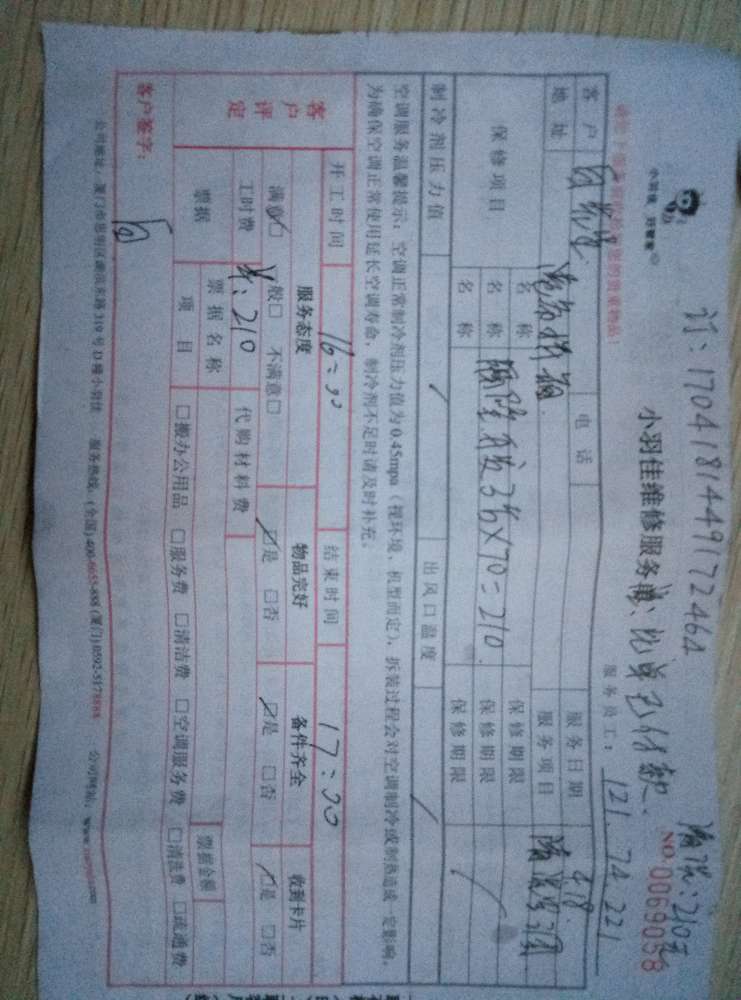 订：170418144917246A
此单已付款
210元
小羽佳 好管家
小羽佳维修服务
NO.0069058
服务员工：121.74.221
客户
电话
服务日期 4.18
地址
服务项目
保修项目
名称 保修期限
名称 3台×70=210. 保修期限
名称 保修期限
制冷剂压力值
出风口温度
空调服务温馨提示：空调正常制冷剂压力值为0.45mpa（视环境、机型而定），拆装过程会对空调制冷或制热造成一定影响，
为确保空调正常使用延长空调寿命，制冷剂不足时请及时补充。
开工时间 16:30 结束时间 17:30
客户评定
服务态度 物品完好 备件齐全 收到卡片
满意☑ 一般□ 不满意□ ☑是 □否 ☑是 □否 ☑是 □否
工时费 210 代购材料费
票据
票据名称 票据金额
项目 □搬办公用品 □服务费 □清洁费 □空调服务费 □清洗费 □疏通费
客户签字：
公司地址：厦门市思明区湖滨东路319号D幢小羽佳 服务热线：(全国)400-6655-888 (厦门)0592-5178888 公司网站：